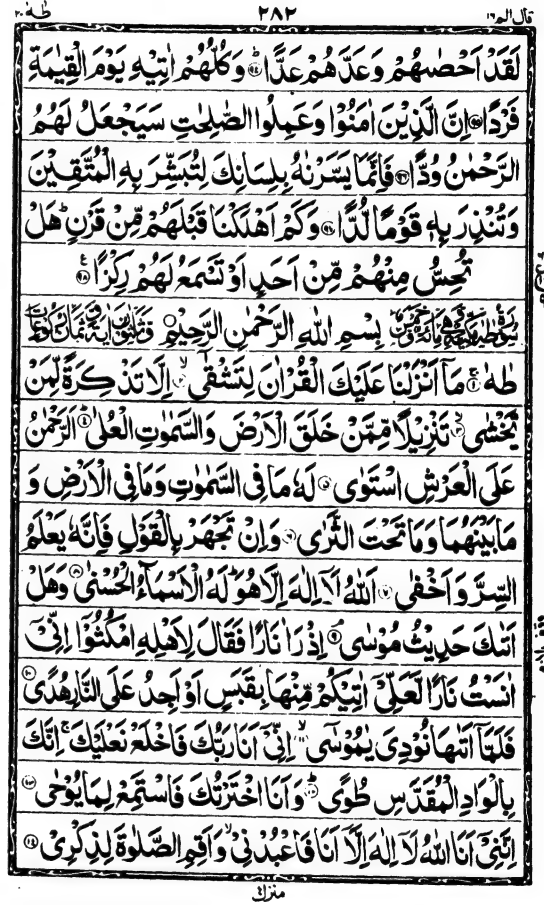 قال الم ١٦ ٢٨٢ طٰهٰ ٢٠
لَقَدْ اَحْصٰىهُمْ وَعَدَّهُمْ عَدًّا ؕ﴿٩٤﴾ وَكُلُّهُمْ اٰتِيْهِ يَوْمَ الْقِيٰمَةِ
فَرْدًا ﴿٩٥﴾ اِنَّ الَّذِيْنَ اٰمَنُوْا وَعَمِلُوا الصّٰلِحٰتِ سَيَجْعَلُ لَهُمُ
الرَّحْمٰنُ وُدًّا ﴿٩٦﴾ فَاِنَّمَا يَسَّرْنٰهُ بِلِسَانِكَ لِتُبَشِّرَ بِهِ الْمُتَّقِيْنَ
وَتُنْذِرَ بِهٖ قَوْمًا لُّدًّا ﴿٩٧﴾ وَكَمْ اَهْلَكْنَا قَبْلَهُمْ مِّنْ قَرْنٍ ؕ هَلْ
تُحِسُّ مِنْهُمْ مِّنْ اَحَدٍ اَوْ تَسْمَعُ لَهُمْ رِكْزًا ﴿٩٨﴾
بِسْمِ اللّٰهِ الرَّحْمٰنِ الرَّحِيْمِ
طٰهٰ ۚ﴿١﴾ مَاۤ اَنْزَلْنَا عَلَيْكَ الْقُرْاٰنَ لِتَشْقٰۤى ۙ﴿٢﴾ اِلَّا تَذْكِرَةً لِّمَنْ
يَّخْشٰى ۙ﴿٣﴾ تَنْزِيْلًا مِّمَّنْ خَلَقَ الْاَرْضَ وَالسَّمٰوٰتِ الْعُلٰى ؕ﴿٤﴾ اَلرَّحْمٰنُ
عَلَى الْعَرْشِ اسْتَوٰى ﴿٥﴾ لَهٗ مَا فِى السَّمٰوٰتِ وَمَا فِى الْاَرْضِ وَ
مَا بَيْنَهُمَا وَمَا تَحْتَ الثَّرٰى ﴿٦﴾ وَاِنْ تَجْهَرْ بِالْقَوْلِ فَاِنَّهٗ يَعْلَمُ
السِّرَّ وَاَخْفٰى ﴿٧﴾ اَللّٰهُ لَاۤ اِلٰهَ اِلَّا هُوَ ؕ لَهُ الْاَسْمَآءُ الْحُسْنٰى ﴿٨﴾ وَهَلْ
اَتٰىكَ حَدِيْثُ مُوْسٰى ۘ﴿٩﴾ اِذْ رَاٰ نَارًا فَقَالَ لِاَهْلِهِ امْكُثُوْۤا اِنِّىْۤ
اٰنَسْتُ نَارًا لَّعَلِّىْۤ اٰتِيْكُمْ مِّنْهَا بِقَبَسٍ اَوْ اَجِدُ عَلَى النَّارِ هُدًى ﴿١٠﴾
فَلَمَّاۤ اَتٰىهَا نُوْدِىَ يٰمُوْسٰى ؕ﴿١١﴾ اِنِّىْۤ اَنَا رَبُّكَ فَاخْلَعْ نَعْلَيْكَ ۚ اِنَّكَ
بِالْوَادِ الْمُقَدَّسِ طُوًى ؕ﴿١٢﴾ وَاَنَا اخْتَرْتُكَ فَاسْتَمِعْ لِمَا يُوْحٰى ﴿١٣﴾
اِنَّنِىْۤ اَنَا اللّٰهُ لَاۤ اِلٰهَ اِلَّاۤ اَنَا فَاعْبُدْنِىْ ۙ وَاَقِمِ الصَّلٰوةَ لِذِكْرِىْ ﴿١٤﴾